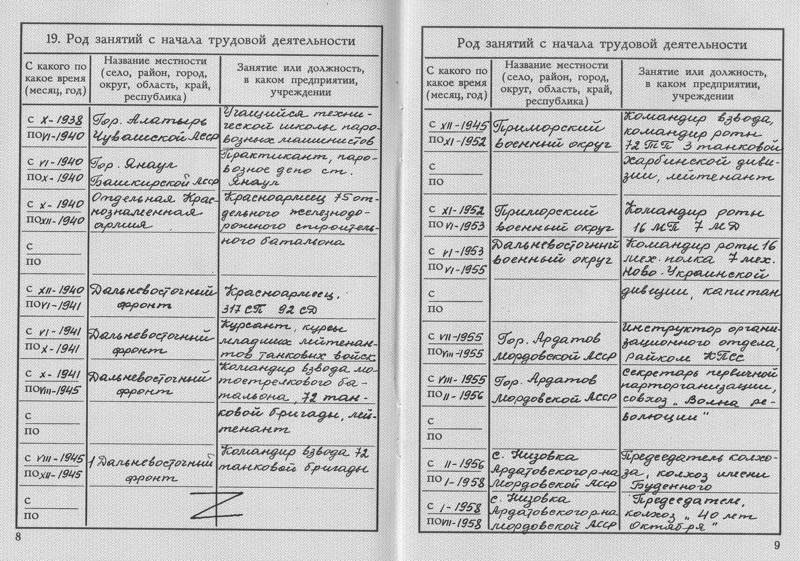 19. Род занятий с начала трудовой деятельности
С какого по
какое время
(месяц, год)
Название местности
(село, район, город,
округ, область, край,
республика)
Занятие или должность,
в каком предприятии,
учреждении
с X-1938
по VI-1940
Гор. Алатырь
Чувашской Асср
Учащийся техни-
ческой школы паро-
возных машинистов
с VI-1940
по X-1940
Гор. Янаул
Башкирской Асср
Практикант, паро-
возное депо ст.
Янаул
с X-1940
по XII-1940
Отдельная Крас-
нознаменная
армия
Красноармеец 75 от-
дельного железнодо-
рожного строитель-
ного батальона
с
по
с XII-1940
по VI-1941
Дальневосточный
фронт
Красноармеец,
317 СП 92 СД
с VI-1941
по X-1941
Дальневосточный
фронт
Курсант, курсы
младших лейтенан-
тов танковых войск
с X-1941
по VIII-1945
Дальневосточный
фронт
Командир взвода мо-
тострелкового ба-
тальона, 72 тан-
ковой бригады, лей-
тенант
с
по
с VIII-1945
по XII-1945
1 Дальневосточный
фронт
Командир взвода 72
танковой бригады
с
по
Z
8
Род занятий с начала трудовой деятельности
С какого по
какое время
(месяц, год)
Название местности
(село, район, город,
округ, область, край,
республика)
Занятие или должность,
в каком предприятии,
учреждении
с XII-1945
по XI-1952
Приморский
военный округ
Командир взвода,
командир роты
72 ТП 3 танковой
Харбинской диви-
зии, лейтенант
с
по
с XI-1952
по VI-1953
Приморский
военный округ
Командир роты
16 МП 7 МД
с VI-1953
по VI-1955
Дальневосточный
военный округ
Командир роты 16
мех. полка 7 мех.
Ново-Украинской
дивизии, капитан
с
по
с VII-1955
по VIII-1955
Гор. Ардатов
Мордовской Асср
Инструктор органи-
зационного отдела,
райком КПСС
с VIII-1955
по II-1956
Гор. Ардатов
Мордовской Асср
секретарь первичной
парторганизации,
совхоз „Волна ре-
волюции"
с
по
с II-1956
по I-1958
с. Низовка
Ардатовского р-на
Мордовской Асср
Председатель колхо-
за, колхоз имени
Буденного
с I-1958
по VII-1958
с. Низовка
Ардатовского р-на
Мордовской Асср
Председатель,
колхоз „40 лет
Октября"
9